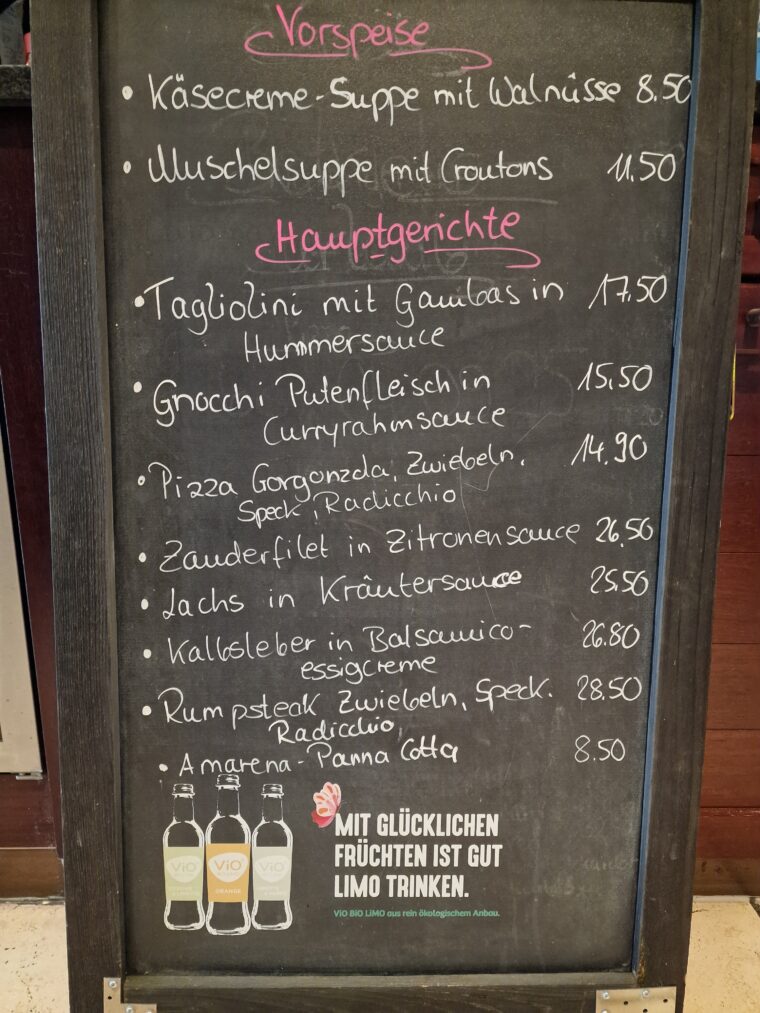 Vorspeise
• Käsecreme-Suppe mit Walnüsse 8.50
• Muschelsuppe mit Croutons 11.50
Hauptgerichte
• Tagliolini mit Gambas in 17.50
Hummersauce
• Gnocchi Putenfleisch in 15.50
Curryrahmsauce
• Pizza Gorgonzola, Zwiebeln, 14.90
Speck, Radicchio
• Zanderfilet in Zitronensauce 26.50
• Lachs in Kräutersauce 25.50
• Kalbsleber in Balsamico- 26.80
essigcreme
• Rumpsteak Zwiebeln, Speck. 28.50
Radicchio
• Amarena-Panna Cotta 8.50
ViO ViO ViO
ORANGE
MIT GLÜCKLICHEN
FRÜCHTEN IST GUT
LIMO TRINKEN.
ViO BiO LiMO aus rein ökologischem Anbau.